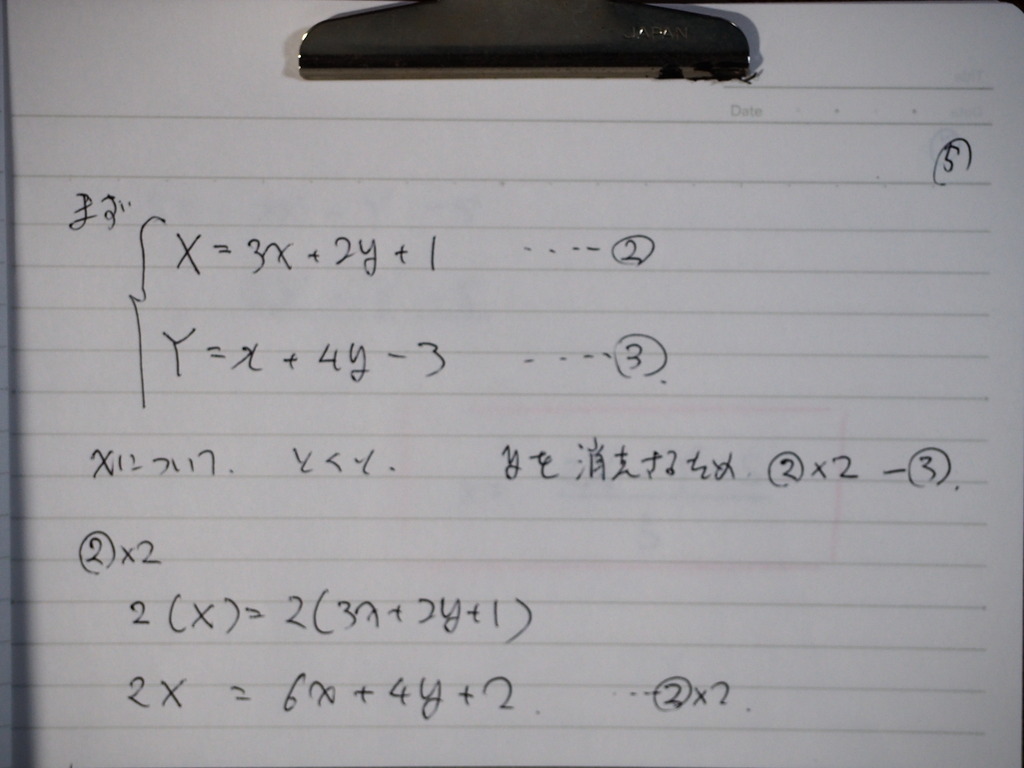 JAPAN
Date
⑤
まず
X = 3x + 2y + 1 ・・・・・②
Y = x + 4y - 3 ・・・・・③.
xについて. とくと. yを消去するため ②×2 - ③.
②×2
2(X) = 2(3x + 2y + 1)
2X = 6x + 4y + 2. ・・・②×2.